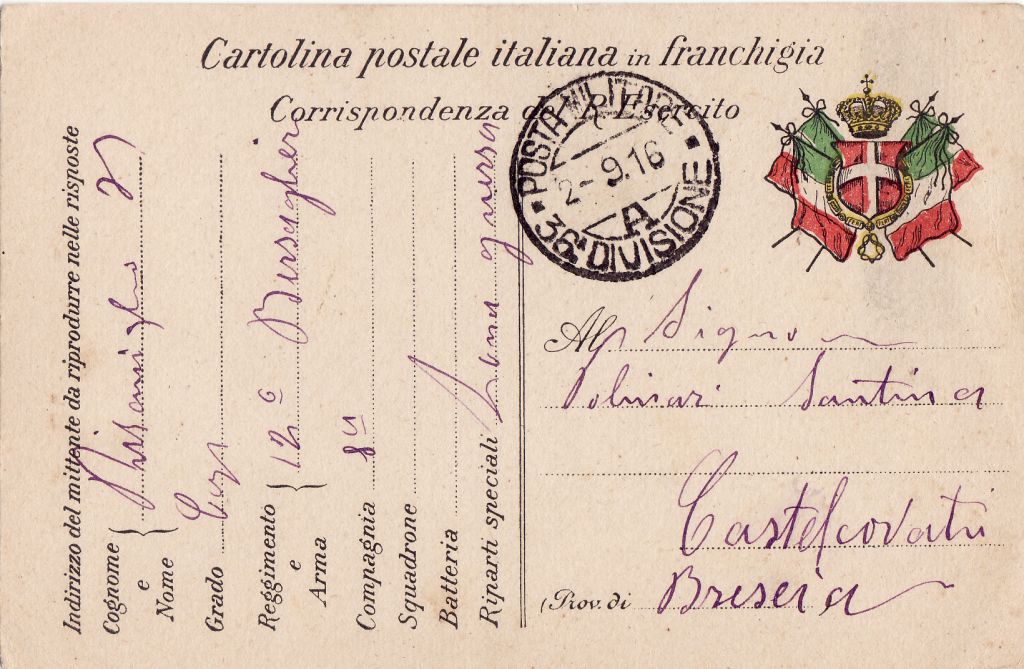 Cartolina postale italiana in franchigia
Corrispondenza del R. Esercito
POSTA MILITARE
2-9.16
A
36ª DIVISIONE
Indirizzo del mittente da riprodurre nelle risposte
Cognome e Nome
Grado
Reggimento e Arma 12º Bersaglieri
Compagnia 8ª
Squadrone
Batteria
Riparti speciali Zona guerra
Al Signo
Polinari Santina
Castelcovati
(Prov. di Brescia